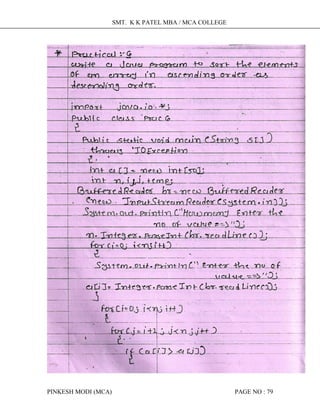 SMT. K K PATEL MBA / MCA COLLEGE
* Practical : 6
write a Java program to sort the elements
of an array in ascending order as
descending order.
import java.io.*;
Public class Prac6
{
Public static void main (String s[])
throws IOException
{
int a[] = new int[50];
int n,i,j,temp;
BufferedReader br = new BufferedReader
(new InputStreamReader(System.in));
System.out.println("How many Enter the
no of value =>");
n= Integer.ParseInt(br.readLine());
for(i=0; i<n;i++)
{
System.out.println("enter the no of
value =>");
a[i]= Integer.ParseInt(br.readLine());
}
for(i=0; i<n; i++)
{
for(j=i+1; j<n; j++)
{
if(a[i]>a[j])
{
PINKESH MODI (MCA) PAGE NO : 79